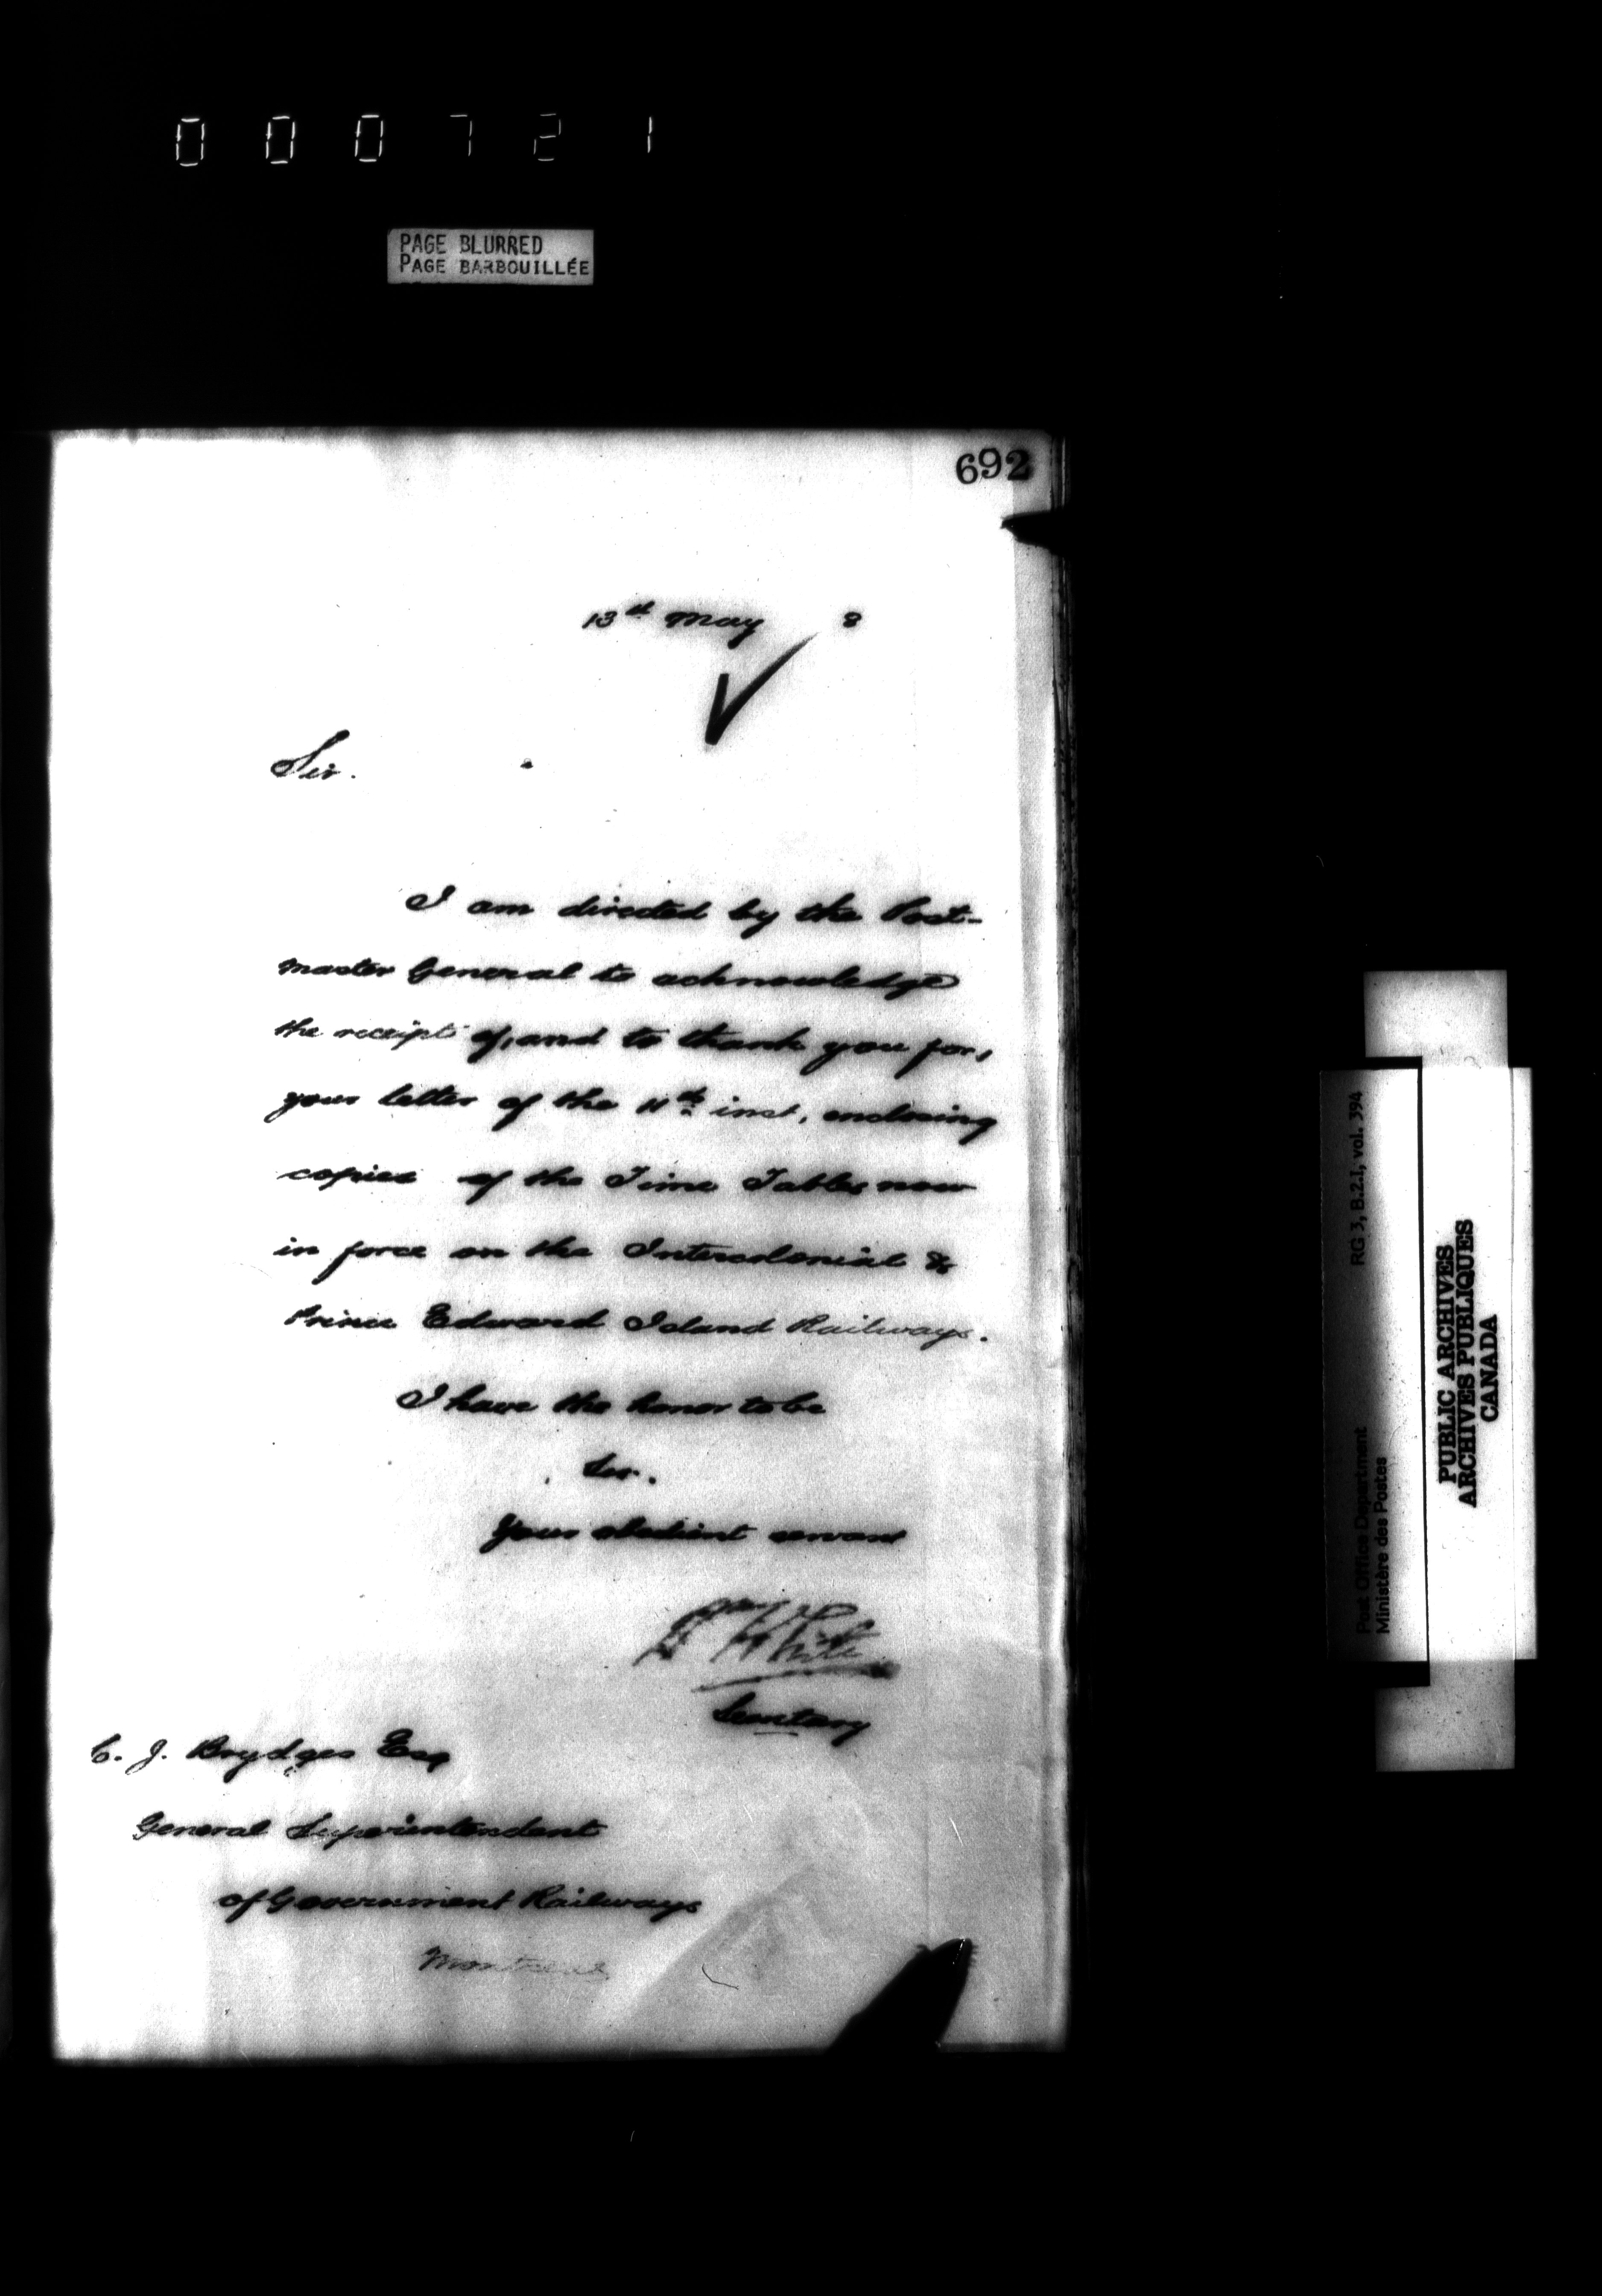 000721
PAGE BLURRED
PAGE BARBOUILLÉE
692
13th May 8
Sir.
I am directed by the Post-
master General to acknowledge
the receipt of, and to thank you for,
your letter of the 11th inst, enclosing
copies of the Time Tables now
in force on the Intercolonial &
Prince Edward Island Railways.
I have the honor to be
Sir.
Your obedient servant
White
Secretary
C. J. Brydges Esq
General Superintendent
of Government Railways
Montreal
RG 3, B.2.I, vol. 394
Post Office Department
Ministère des Postes
PUBLIC ARCHIVES
ARCHIVES PUBLIQUES
CANADA